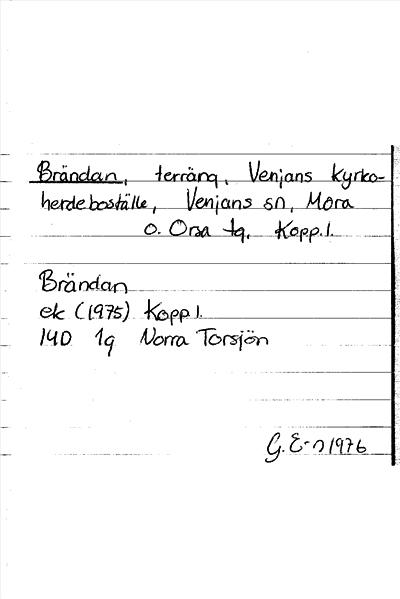 Brändan, terräng, Venjans kyrko-
herdeboställe, Venjans sn, Mora
o. Orsa tg, Kopp.l.
Brändan
ek (1975) Kopp l.
14D 1g Norra Torsjön
G. E-n 1976